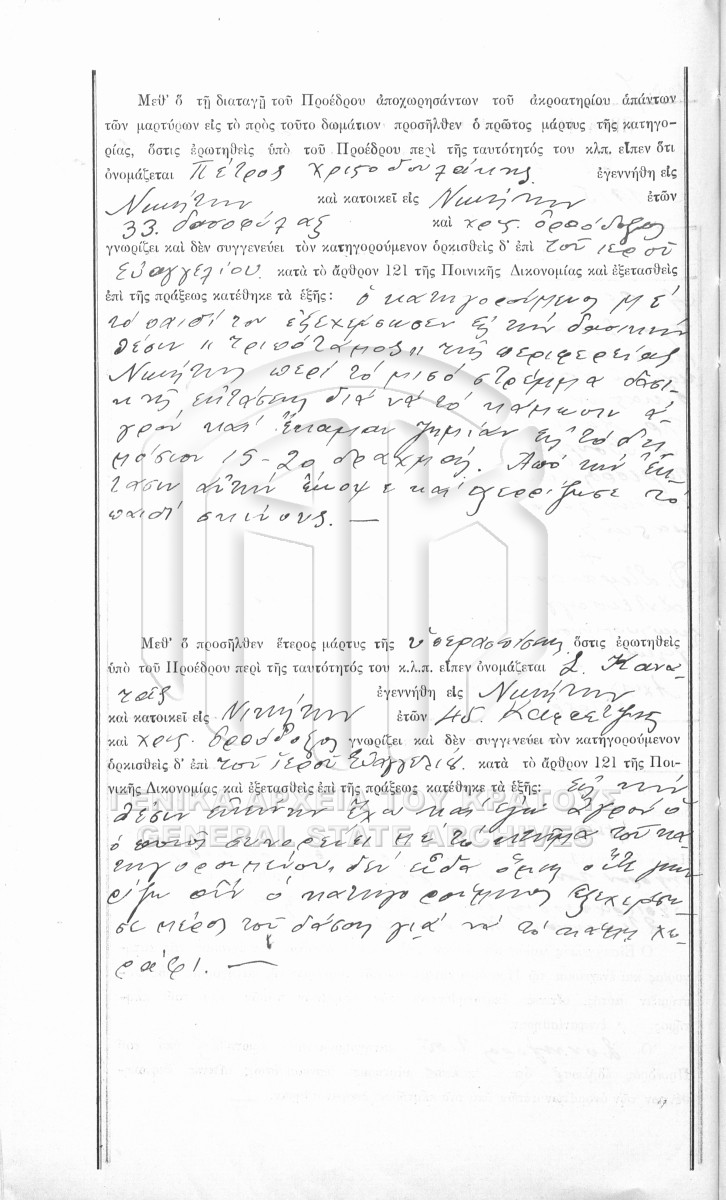 Μεθ' ὃ τῇ διαταγῇ τοῦ Προέδρου ἀποχωρησάντων τοῦ ἀκροατηρίου ἁπάντων
τῶν μαρτύρων εἰς τὸ πρὸς τοῦτο δωμάτιον προσῆλθεν ὁ πρῶτος μάρτυς τῆς κατηγο-
ρίας, ὅστις ἐρωτηθεὶς ὑπὸ τοῦ Προέδρου περὶ τῆς ταυτότητός του κλπ. εἶπεν ὅτι
ὀνομάζεται Πέτρος Χριστοδουλάκης ἐγεννήθη εἰς
Νικήτην καὶ κατοικεῖ εἰς Νικήτην ἐτῶν
33. δασοφύλαξ καὶ χρισ. ὀρθόδοξος
γνωρίζει καὶ δὲν συγγενεύει τὸν κατηγορούμενον ὁρκισθεὶς δ' ἐπὶ τοῦ ἱεροῦ
Εὐαγγελίου. κατὰ τὸ ἄρθρον 121 τῆς Ποινικῆς Δικονομίας καὶ ἐξετασθεὶς
ἐπὶ τῆς πράξεως κατέθηκε τὰ ἑξῆς: ὁ κατηγορούμενος μὲ
τὸ παιδί του ἐξεχέρσωσεν εἰς τὴν δασικὴν
θέσιν "Τριπόταμος" τῆς περιφερείας
Νικήτης περὶ τὸ μισὸ στρέμμα δασι-
κῆς ἐκτάσεως διὰ νὰ τὸ κάμωσιν ἀ-
γρόν καὶ ἔκαμαν ζημίαν εἰς τὸ δη-
μόσιον 15-20 δραχμάς. Ἀπὸ τὴν ἔκ-
τασιν αὐτὴν ἔκοψε καὶ ξερρίζωσε τὸ
παιδὶ σκίνους. —
Μεθ' ὃ προσῆλθεν ἕτερος μάρτυς τῆς ὑπερασπίσεως ὅστις ἐρωτηθεὶς
ὑπὸ τοῦ Προέδρου περὶ τῆς ταυτότητός του κ.λ.π. εἶπεν ὀνομάζεται
ἐγεννήθη εἰς Νικήτην
καὶ κατοικεῖ εἰς Νικήτην ἐτῶν
καὶ χρισ. ὀρθόδοξος γνωρίζει καὶ δὲν συγγενεύει τὸν κατηγορούμενον
ὁρκισθεὶς δ' ἐπὶ τοῦ ἱεροῦ Εὐαγγελίου. κατὰ τὸ ἄρθρον 121 τῆς Ποι-
νικῆς Δικονομίας καὶ ἐξετασθεὶς ἐπὶ τῆς πράξεως κατέθηκε τὰ ἑξῆς: Εἰς τὴν
θέσιν ἐκείνην ἔχω καὶ ἐγὼ ἀγρὸν ὁ
ὁποῖος συνορεύει μὲ τὸ κτῆμα τοῦ κα-
τηγορουμένου, δὲν εἶδα ὅμως οὔτε γνω-
ρίζω ἐὰν ὁ κατηγορούμενος ἐξεχέρσω-
σε μέρος τοῦ δάσους γιὰ νὰ τὸ κάμῃ χω-
ράφι. —
ΓΕΝΙΚΑ ΑΡΧΕΙΑ ΤΟΥ ΚΡΑΤΟΥΣ
GENERAL STATE ARCHIVES